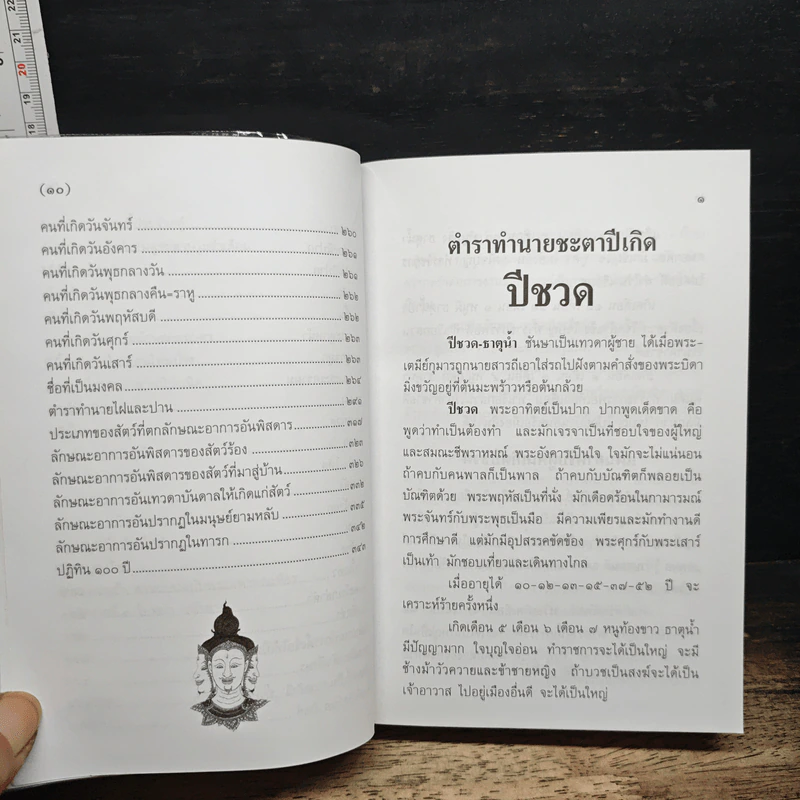 22
21
20
19
18
(๑๐)
คนที่เกิดวันจันทร์ ๒๖๐
คนที่เกิดวันอังคาร ๒๖๑
คนที่เกิดวันพุธกลางวัน ๒๖๑
คนที่เกิดวันพุธกลางคืน=ราหู ๒๖๒
คนที่เกิดวันพฤหัสบดี ๒๖๒
คนที่เกิดวันศุกร์ ๒๖๓
คนที่เกิดวันเสาร์ ๒๖๓
ชื่อที่เป็นมงคล ๒๖๔
ตำราทำนายไฝและปาน ๒๙๑
ประเภทของสัตว์ที่ตกลักษณะอาการอันพิสดาร ๓๑๗
ลักษณะอาการอันพิสดารของสัตว์ร้อง ๓๒๓
ลักษณะอาการอันพิสดารของสัตว์ที่มาสู่บ้าน ๓๒๖
ลักษณะอาการอันเทวดาบันดาลให้เกิดแก่สัตว์ ๓๓๒
ลักษณะอาการอันปรากฏในมนุษย์ยามหลับ ๓๓๕
ลักษณะอาการอันปรากฏในทารก ๓๔๒
ปฏิทิน ๑๐๐ ปี ๓๔๓
๑
ตำราทำนายชะตาปีเกิด
ปีชวด
ปีชวด-ธาตุน้ำ ชันษาเป็นเทวดาผู้ชาย ได้เมื่อพระ-
เตมีย์กุมารถูกนายสารถีเอาใส่รถไปฝังตามคำสั่งของพระบิดา
มิ่งขวัญอยู่ที่ต้นมะพร้าวหรือต้นกล้วย
ปีชวด พระอาทิตย์เป็นปาก ปากพูดเด็ดขาด คือ
พูดว่าทำเป็นต้องทำ และมักเจรจาเป็นที่ชอบใจของผู้ใหญ่
และสมณะชีพราหมณ์ พระอังคารเป็นใจ ใจมักจะไม่แน่นอน
ถ้าคบกับคนพาลก็เป็นพาล ถ้าคบกับบัณฑิตก็พลอยเป็น
บัณฑิตด้วย พระพฤหัสเป็นที่นั่ง มักเดือดร้อนในกามารมณ์
พระจันทร์กับพระพุธเป็นมือ มีความเพียรและมักทำงานดี
การศึกษาดี แต่มักมีอุปสรรคขัดข้อง พระศุกร์กับพระเสาร์
เป็นเท้า มักชอบเที่ยวและเดินทางไกล
เมื่ออายุได้ ๑๐-๑๒-๑๓-๑๕-๓๗-๕๒ ปี จะ
เคราะห์ร้ายครั้งหนึ่ง
เกิดเดือน ๕ เดือน ๖ เดือน ๗ หนูท้องขาว ธาตุน้ำ
มีปัญญามาก ใจบุญใจอ่อน ทำราชการจะได้เป็นใหญ่ จะมี
ช้างม้าวัวควายและข้าชายหญิง ถ้าบวชเป็นสงฆ์จะได้เป็น
เจ้าอาวาส ไปอยู่เมืองอื่นดี จะได้เป็นใหญ่